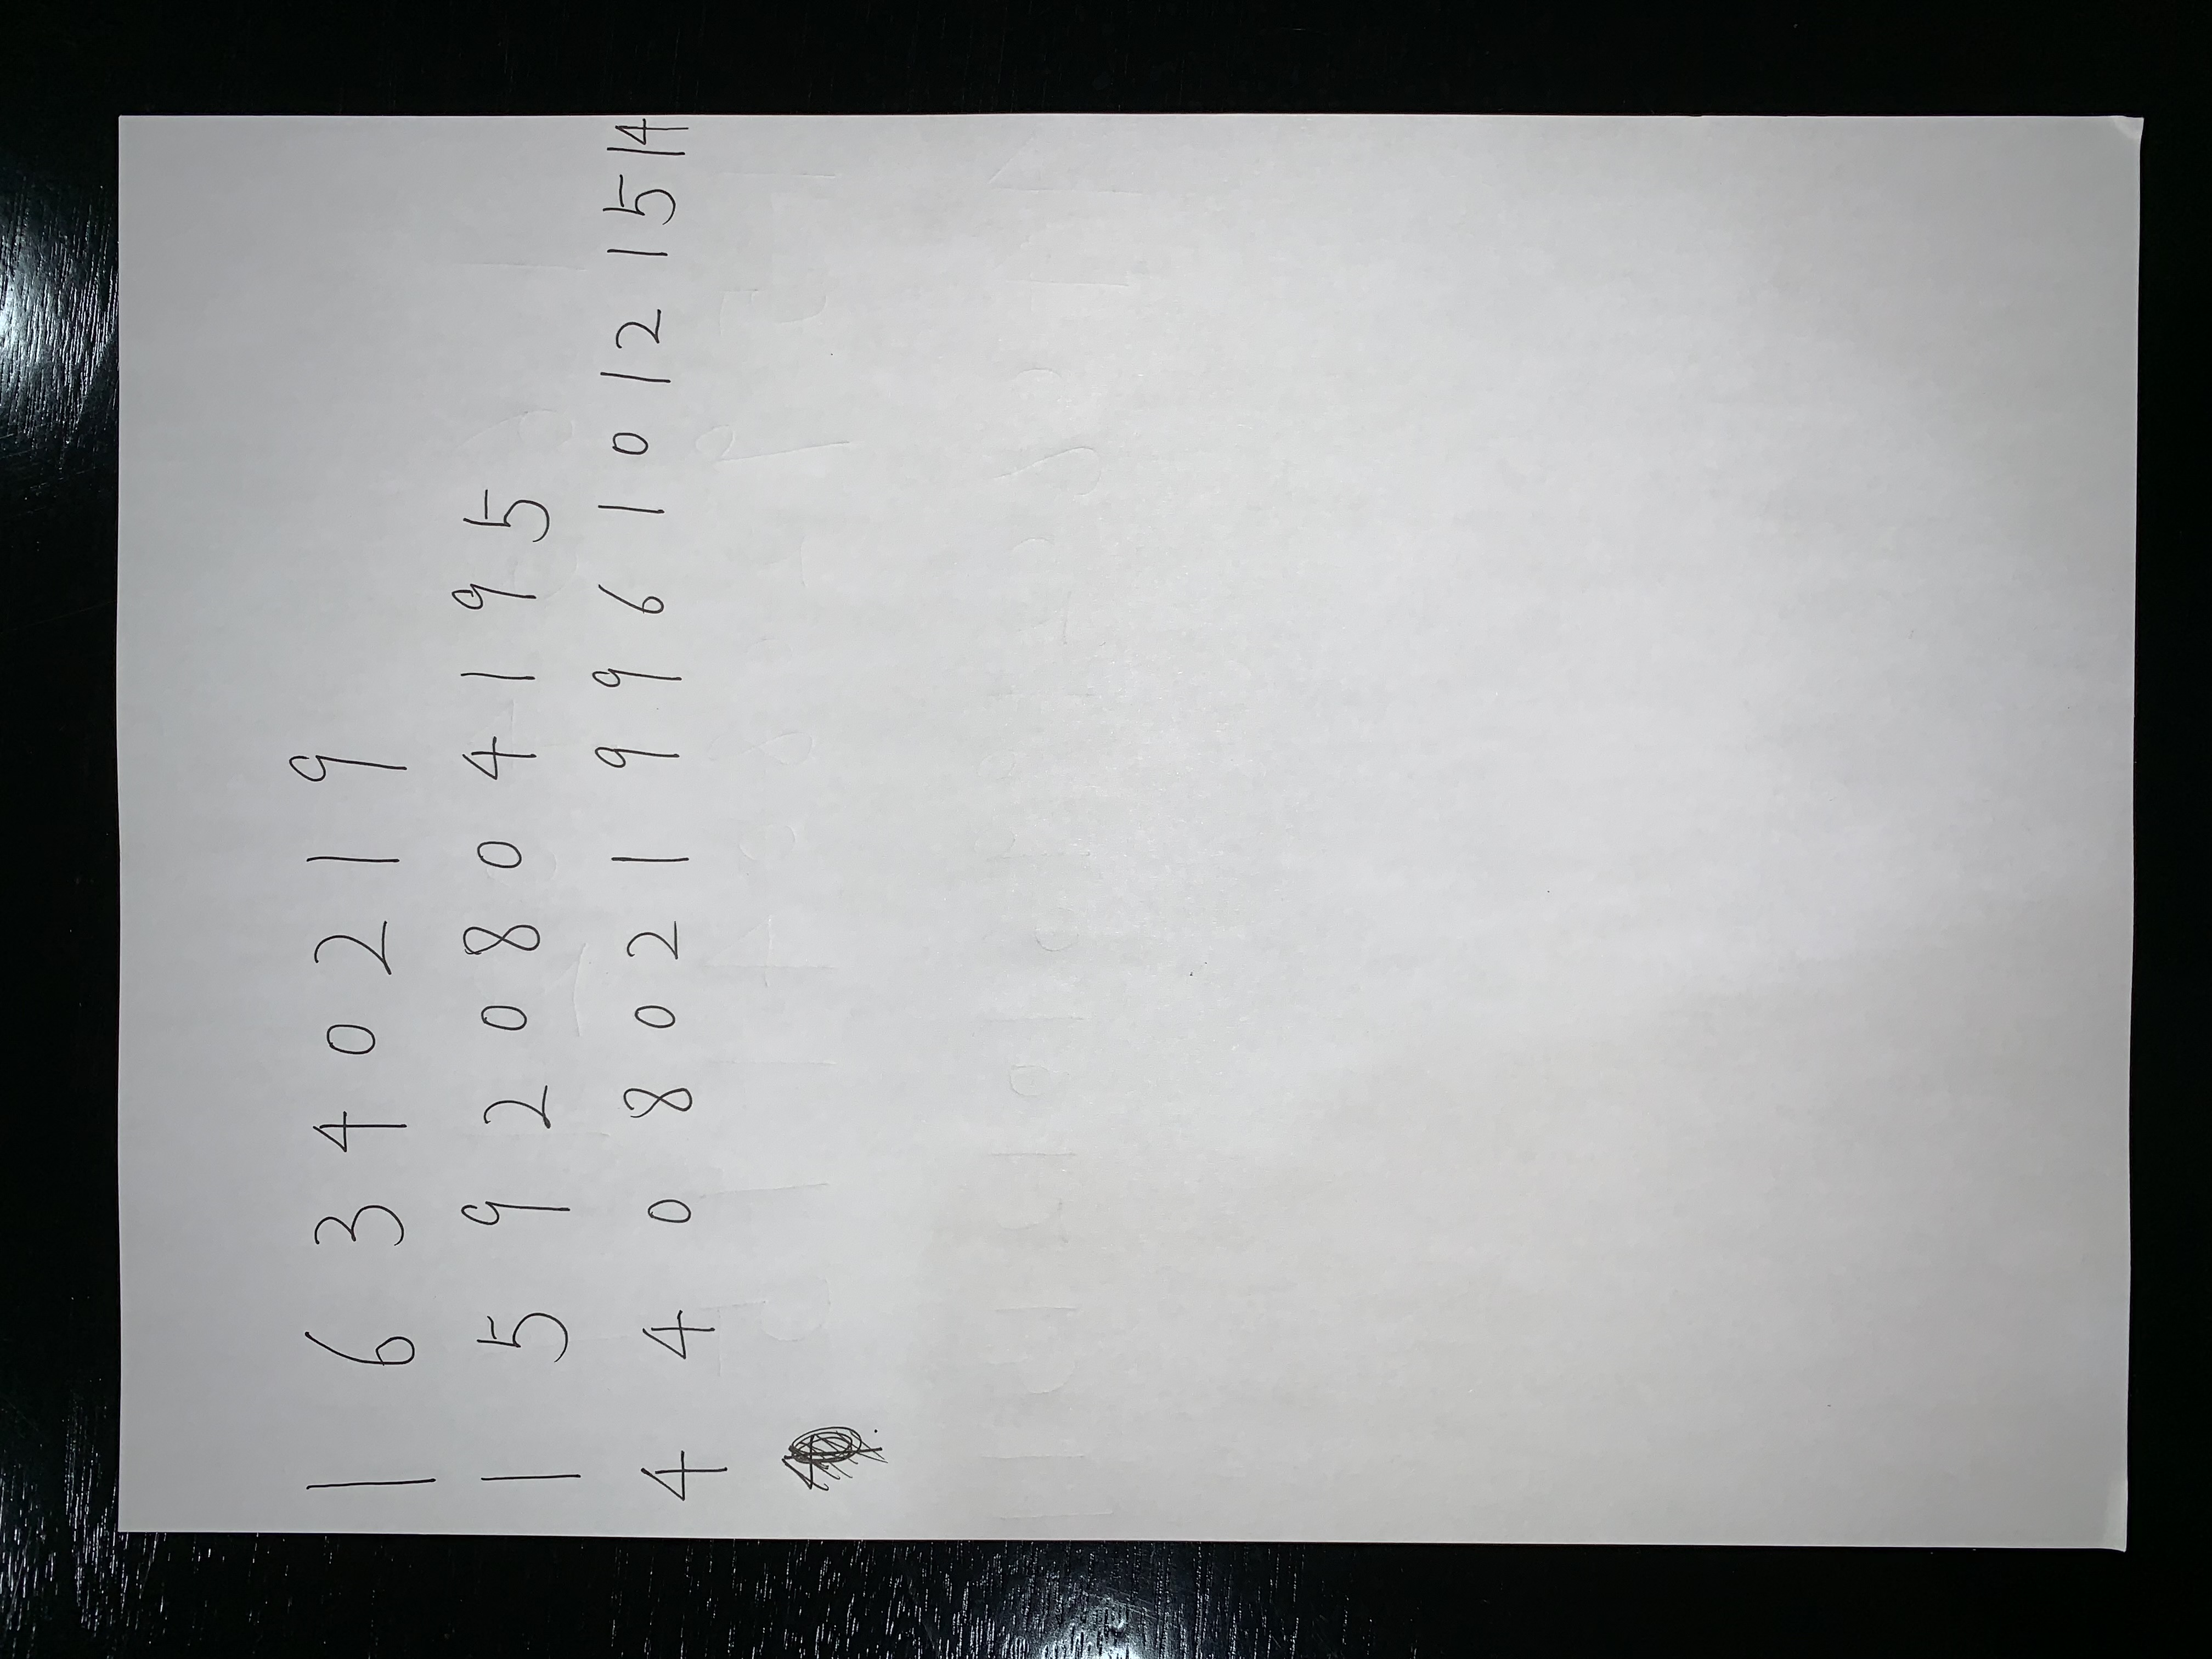 1 6 3 4 0 2 1 9
1 5 9 2 0 8 0 4 1 9 5
4 4 0 8 0 2 1 9 9 6 1 0 1 2 1 5 1 4